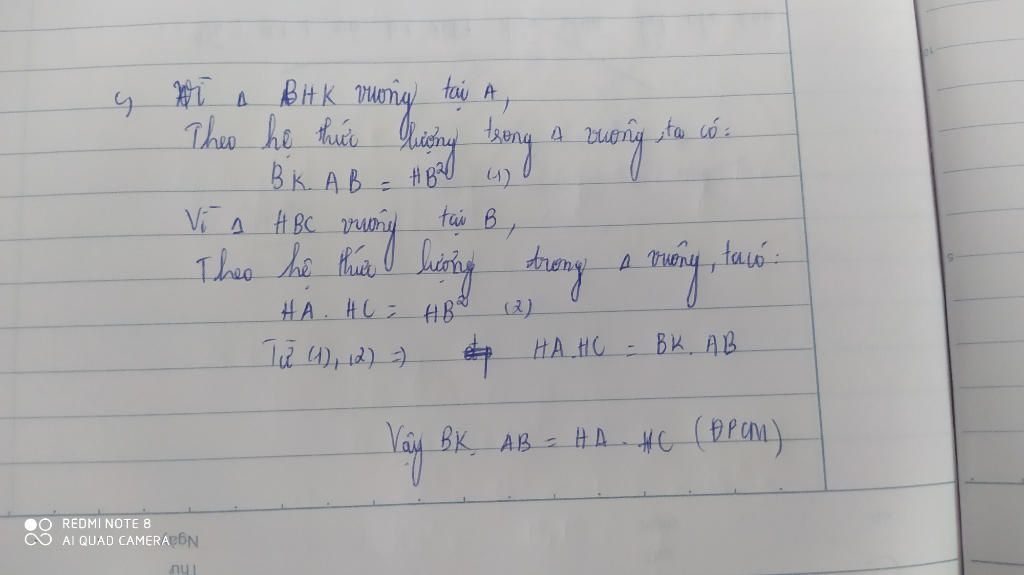 c, Vì Δ BHK vuông tại A,
Theo hệ thức lượng trong Δ vuông, ta có:
BK. AB = HB² (1)
Vì Δ HBC vuông tại B,
Theo hệ thức lượng trong Δ vuông, ta có:
HA. HC = HB² (2)
Từ (1), (2) => HA.HC = BK. AB
Vậy BK. AB = HA. HC (ĐPCM)
REDMI NOTE 8
AI QUAD CAMERA
Ngày
Thứ